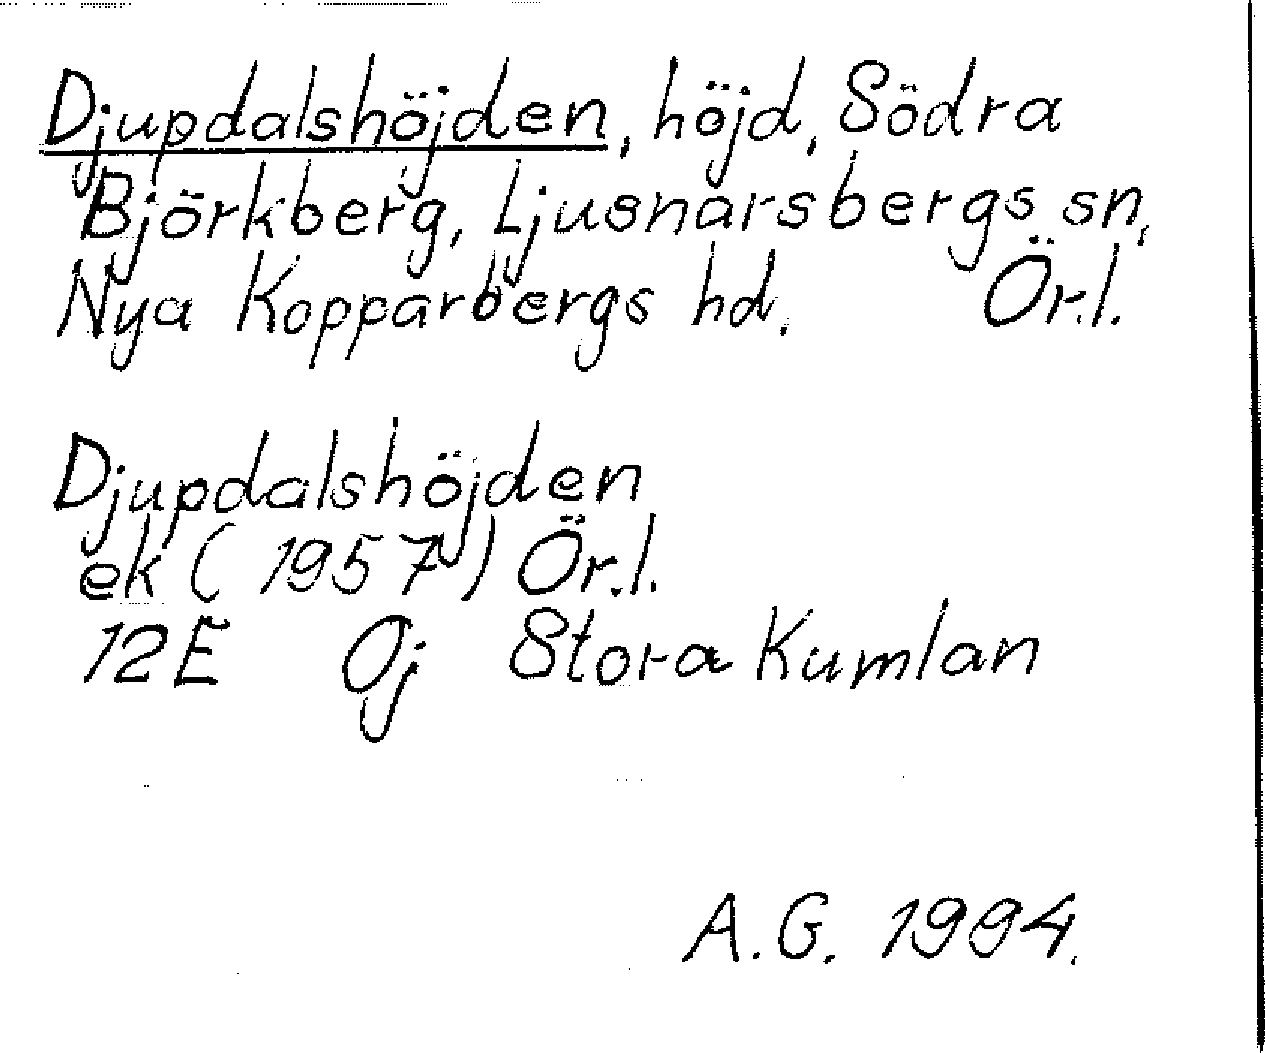 Djupdalshöjden, höjd, Södra
Björkberg, Ljusnarsbergs sn,
Nya Kopparbergs hd. Ör.l.
Djupdalshöjden
ek (1957) Ör.l.
12E 0j Stora Kumlan
A.G. 1994.